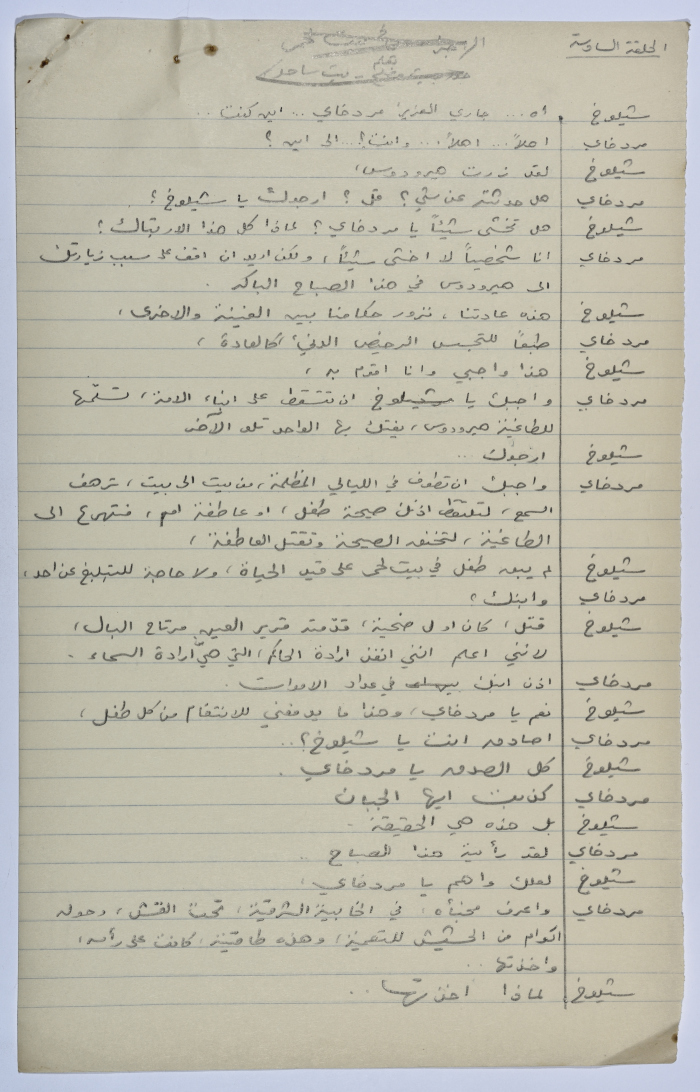 الحلقة السادسة
بيت ساحور
شيلوخ آه ... جاري العزيز مردخاي ... اين كنت ..
مردخاي اهلاً ... اهلاً ... وانت؟ ... الى اين ؟
شيلوخ لقد زرت هيرودوس،
مردخاي هل حدثته عن شيء؟ قل ؟ ارجوك يا شيلوخ ؟
شيلوخ هل تخشى شيئاً يا مردخاي ؟ لماذا كل هذا الارتباك ؟
مردخاي انا شخصياً لا اخشى شيئاً، ولكن اريد ان اقف على سبب زيارتك
الى هيرودوس في هذا الصباح الباكر .
شيلوخ هذه عادتنا، نزور حكامنا بين الفينة والاخرى،
مردخاي طبعاً للتجسس الرخيص الدنيء، كالعادة،
شيلوخ هذا واجبي وانا اقوم به،
مردخاي واجبك يا شيلوخ ان تتسقط على ابناء الامة، تسلّمها
للطاغية هيرودوس، يفتك بها الواحد تلو الآخر
شيلوخ ارجوك ..
مردخاي واجبك ان تطوف في الليالي المظلمة، من بيت الى بيت، ترهف
السمع، لتلتقط اذنك صيحة طفل، او عاطفة ام، فتهرع الى
الطاغية، لتخنق الصيحة وتقتل العاطفة،
شيلوخ لم يبق طفل في بيت لحم على قيد الحياة، ولا حاجة للتبليغ عن احد،
مردخاي وابنك ؟
شيلوخ قتل، كان اول ضحية، قدّمته قرير العين مرتاح البال،
لانني اعلم انني انفذ ارادة الحاكم، التي هي ارادة السماء .
مردخاي اذن ابنك في عداد الاموات .
شيلوخ نعم يا مردخاي، وهذا ما يدفعني للانتقام من كل طفل،
مردخاي اصادق انت يا شيلوخ ؟ ..
شيلوخ كل الصدق يا مردخاي .
مردخاي كذبت ايها الجبان
شيلوخ بل هذه هي الحقيقة .
مردخاي لقد رأيته هذا الصباح ..
شيلوخ لعلك واهم يا مردخاي،
مردخاي واعرف مخبأه، في الخابية الشرقية، تحت القش، وحوله
اكوام من الحشيش للتعمية، وهذه طاقيته، كانت على رأسه،
واخذتها ..
شيلوخ لماذا اخذتها ..